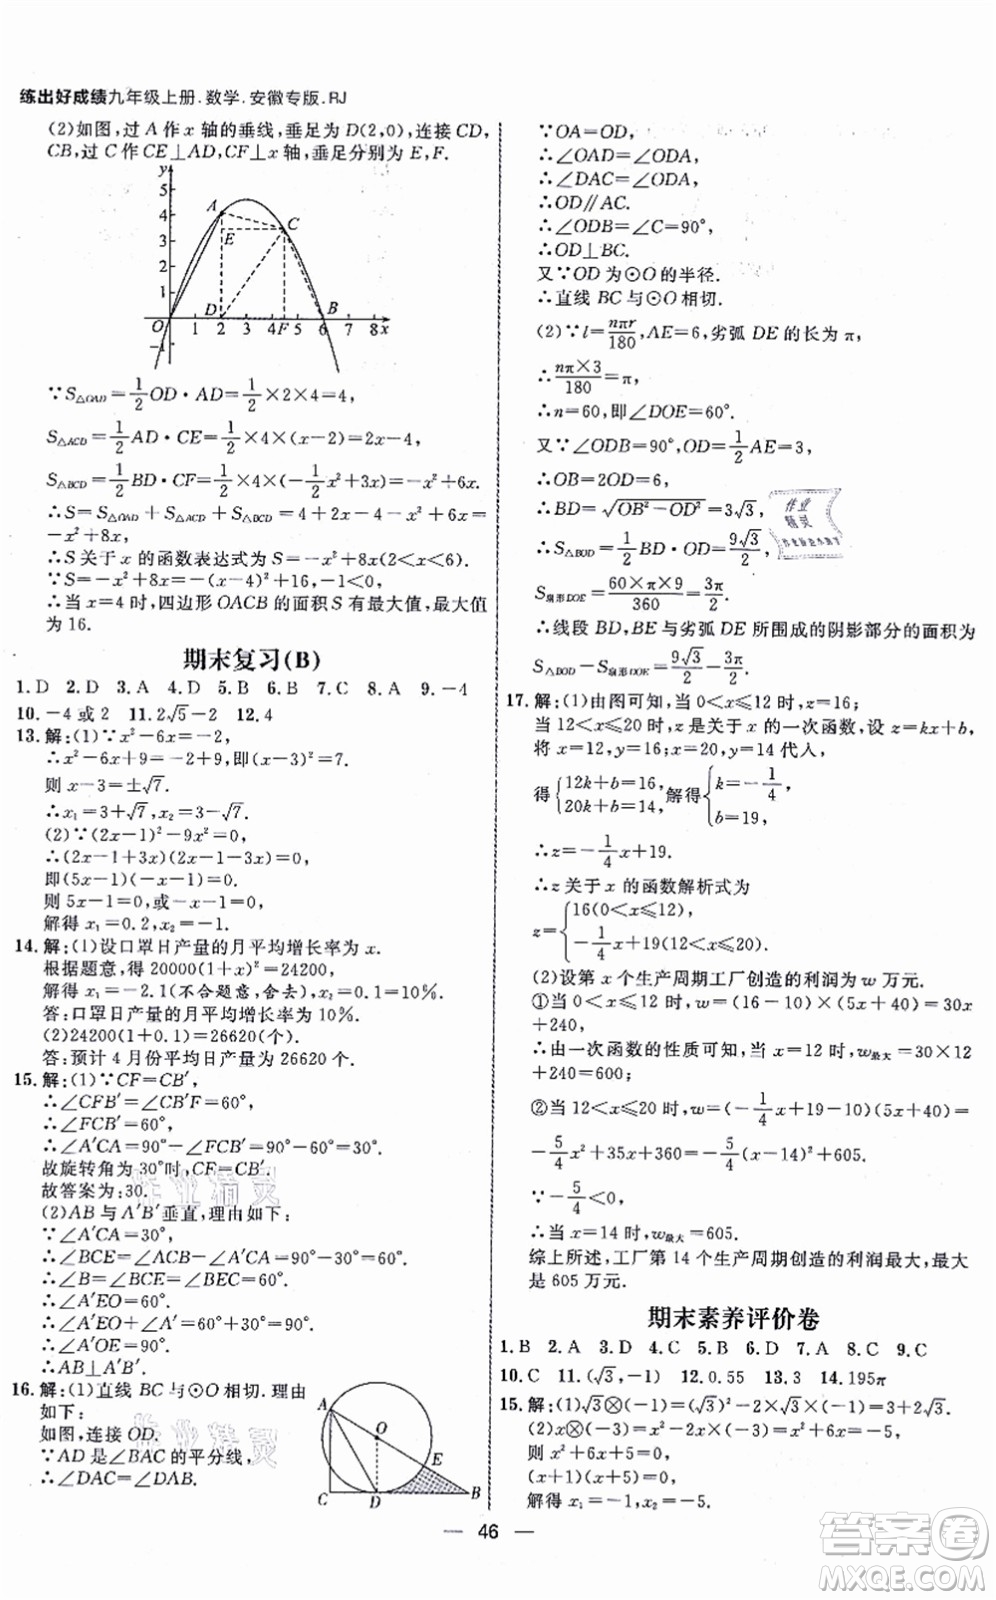 练出好成绩九年级上册.数学.安徽专版.RJ
(2)如图,过A作x轴的垂线,垂足为D(2,0),连接CD,
CB,过C作CE⊥AD,CF⊥x轴,垂足分别为E,F.
y
5
4
3
2
1
-1
O 1 2 3 4 F 5 6 7 8 x
A
E
C
D
B
∵S△OAD=1/2OD·AD=1/2×2×4=4,
S△ACD=1/2AD·CE=1/2×4×(x-2)=2x-4,
S△BCD=1/2BD·CF=1/2×4×(-1/2x²+3x)=-x²+6x,
∴S=S△OAD+S△ACD+S△BCD=4+2x-4-x²+6x=
-x²+8x.
∴S关于x的函数表达式为S=-x²+8x(2<x<6).
∵S=-x²+8x=-(x-4)²+16(2<x<6).
∴当x=4时,四边形OACB的面积S有最大值,最大值
为16.
期末复习(B)
1.D 2.D 3.A 4.D 5.B 6.B 7.C 8.A 9.-4
10.-4或2 11.2√5-2 12.4
13.解:(1)∵x²-6x=-2,
∴x²-6x+9=-2+9,即(x-3)²=7.
则x-3=±√7.
∴x₁=3+√7,x₂=3-√7.
(2)∵(2x-1)²-9x²=0,
∴(2x-1+3x)(2x-1-3x)=0.
即(5x-1)(-x-1)=0.
则5x-1=0,或-x-1=0.
解得x₁=0.2,x₂=-1.
14.解:(1)设口罩日产量的月平均增长率为x.
根据题意,得20000(1+x)²=24200,
解得x₁=-2.1(不合题意,舍去),x₂=0.1=10%.
答:口罩日产量的月平均增长率为10%.
(2)24200(1+0.1)=26620(个).
答:预计4月份平均日产量为26620个.
15.解:(1)∵CF=CB′,
∴∠CFB′=∠CB′F=60°,
∴∠FCB′=60°,
∴∠A′CA=90°-∠FCB′=90°-60°=30°.
故旋转角为30°时,CF=CB′.
故答案为:30.
(2)AB与A′B′垂直,理由如下:
∵∠A′CA=30°,
∴∠BCE=∠ACB-∠A′CA=90°-30°=60°.
∴∠B=∠BCE=∠BEC=60°.
∴∠A′EO=60°.
∴∠A′EO+∠A′=60°+30°=90°.
∴∠A′OE=90°.
∴AB⊥A′B′.
16.解:(1)直线BC与⊙O相切.理由
如下:
如图,连接OD.
∵AD是∠BAC的平分线,
∴∠DAC=∠DAB.
A
O
E
C
D
B
∵OA=OD,
∴∠OAD=∠ODA.
∴∠DAC=∠ODA.
∴OD∥AC.
∴∠ODB=∠C=90°,
∴OD⊥BC.
又∵OD为⊙O的半径.
∴直线BC与⊙O相切.
(2)∵l=nπr/180,AE=6,劣弧DE的长为π,
∴nπ×3/180=π,
∴n=60,即∠DOE=60°.
又∵∠ODB=90°,OD=1/2AE=3,
∴OB=2OD=6,
∴BD=√(OB²-OD²)=3√3,
∴S△BOD=1/2BD·OD=9√3/2,
S扇形DOE=60×π×9/360=3π/2.
∴线段BD,BE与劣弧DE所围成的阴影部分的面积为
S△BOD-S扇形DOE=9√3/2-3π/2.
17.解:(1)由图可知,当0<x≤12时,z=16;
当12<x≤20时,z是关于x的一次函数,设z=kx+b,
将x=12,y=16;x=20,y=14代入,
得{12k+b=16,20k+b=14,解得{k=-1/4,b=19,
∴z=-1/4x+19.
∴z关于x的函数解析式为
z={16(0<x≤12),
-1/4x+19(12<x≤20).
(2)设第x个生产周期工厂创造的利润为w万元.
①当0<x≤12时,w=(16-10)×(5x+40)=30x
+240.
∴由一次函数的性质可知,当x=12时,w最大=30×12
+240=600;
②当12<x≤20时,w=(-1/4x+19-10)(5x+40)=
-5/4x²+35x+360=-5/4(x-14)²+605.
∵-5/4<0,
∴当x=14时,w最大=605.
综上所述,工厂第14个生产周期创造的利润最大,最大
是605万元.
期末素养评价卷
1.B 2.A 3.D 4.C 5.B 6.D 7.A 8.C 9.C
10.C 11.(√3,-1) 12.0.55 13.3 14.195π
15.解:(1)√3⊗(-√3)=(√3)²-2×√3×(-√3)=9.
(2)x⊗(-3)=x²-2x×(-3)=x²+6x=-5,
则x²+6x+5=0.
(x+1)(x+5)=0.
解得x₁=-1,x₂=-5.
作业
精灵
作业精灵
作业精灵
— 46 —
答案卷
MXQE.COM